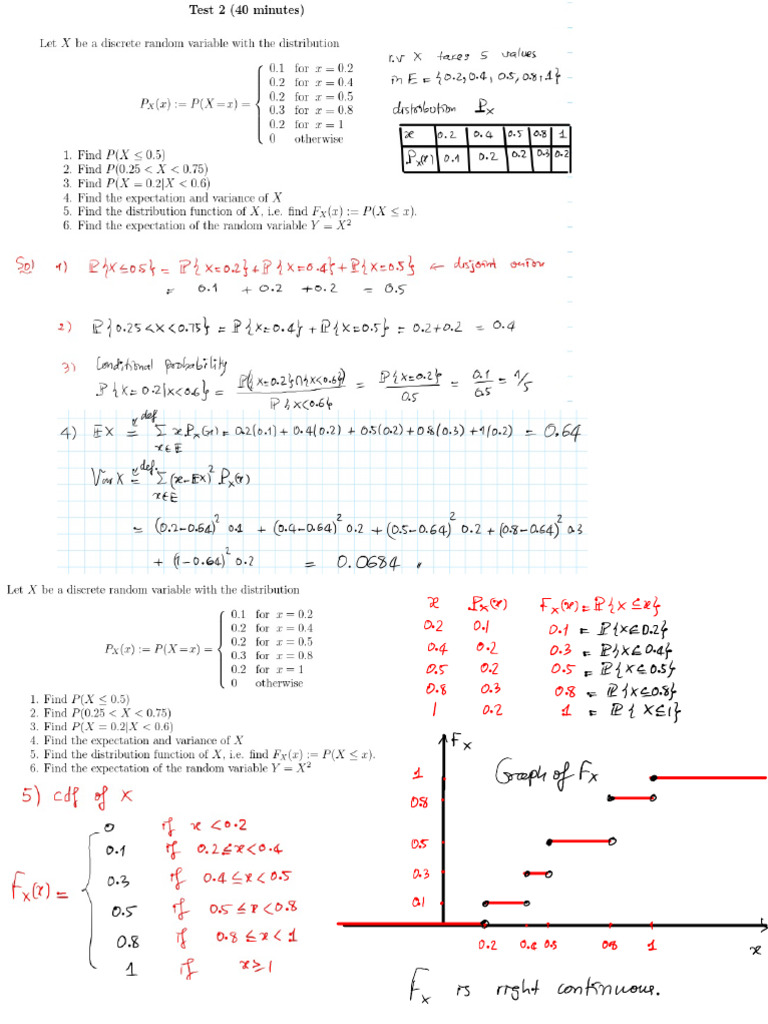 Test 2 (40 minutes)
Let X be a discrete random variable with the distribution
P_X(x) := P(X = x) = { 0.1 for x = 0.2
0.2 for x = 0.4
0.2 for x = 0.5
0.3 for x = 0.8
0.2 for x = 1
0 otherwise
r.v X takes 5 values
in E = {0.2, 0.4, 0.5, 0.8, 1}
distribution P_X
x 0.2 0.4 0.5 0.8 1
P_X(x) 0.1 0.2 0.2 0.3 0.2
1. Find P(X ≤ 0.5)
2. Find P(0.25 < X < 0.75)
3. Find P(X = 0.2|X < 0.6)
4. Find the expectation and variance of X
5. Find the distribution function of X, i.e. find F_X(x) := P(X ≤ x).
6. Find the expectation of the random variable Y = X²
Sol 1) P{X≤0.5} = P{X=0.2}+P{X=0.4}+P{X=0.5} ← disjoint union
= 0.1 + 0.2 + 0.2 = 0.5
2) P{0.25<X<0.75} = P{X=0.4} + P{X=0.5} = 0.2+0.2 = 0.4
3) Conditional probability
P{X=0.2|X<0.6} = P({X=0.2}∩{X<0.6}) / P{X<0.6} = P{X=0.2} / 0.5 = 0.1 / 0.5 = 1/5
4) EX =^def Σ_{x∈E} x P_X(x) = 0.2(0.1) + 0.4(0.2) + 0.5(0.2) + 0.8(0.3) + 1(0.2) = 0.64
Var X =^def. Σ_{x∈E} (x-EX)² P_X(x)
= (0.2-0.64)² 0.1 + (0.4-0.64)² 0.2 + (0.5-0.64)² 0.2 + (0.8-0.64)² 0.3
+ (1-0.64)² 0.2 = 0.0684.
Let X be a discrete random variable with the distribution
P_X(x) := P(X = x) = { 0.1 for x = 0.2
0.2 for x = 0.4
0.2 for x = 0.5
0.3 for x = 0.8
0.2 for x = 1
0 otherwise
1. Find P(X ≤ 0.5)
2. Find P(0.25 < X < 0.75)
3. Find P(X = 0.2|X < 0.6)
4. Find the expectation and variance of X
5. Find the distribution function of X, i.e. find F_X(x) := P(X ≤ x).
6. Find the expectation of the random variable Y = X²
x P_X(x) F_X(x) = P{X ≤ x}
0.2 0.1 0.1 = P{X≤0.2}
0.4 0.2 0.3 = P{X≤0.4}
0.5 0.2 0.5 = P{X≤0.5}
0.8 0.3 0.8 = P{X≤0.8}
1 0.2 1 = P{X≤1}
5) cdf of X
F_X(x) = { 0 if x < 0.2
0.1 if 0.2≤x<0.4
0.3 if 0.4≤x<0.5
0.5 if 0.5≤x<0.8
0.8 if 0.8≤x<1
1 if x≥1
F_X
Graph of F_X
1
0.8
0.5
0.3
0.1
0.2 0.4 0.5 0.8 1 x
F_X is right continuous.